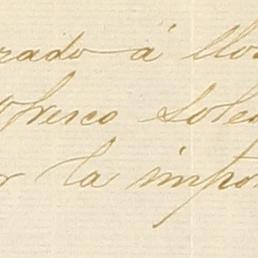 rado á llo
fresco Sole
r la impo